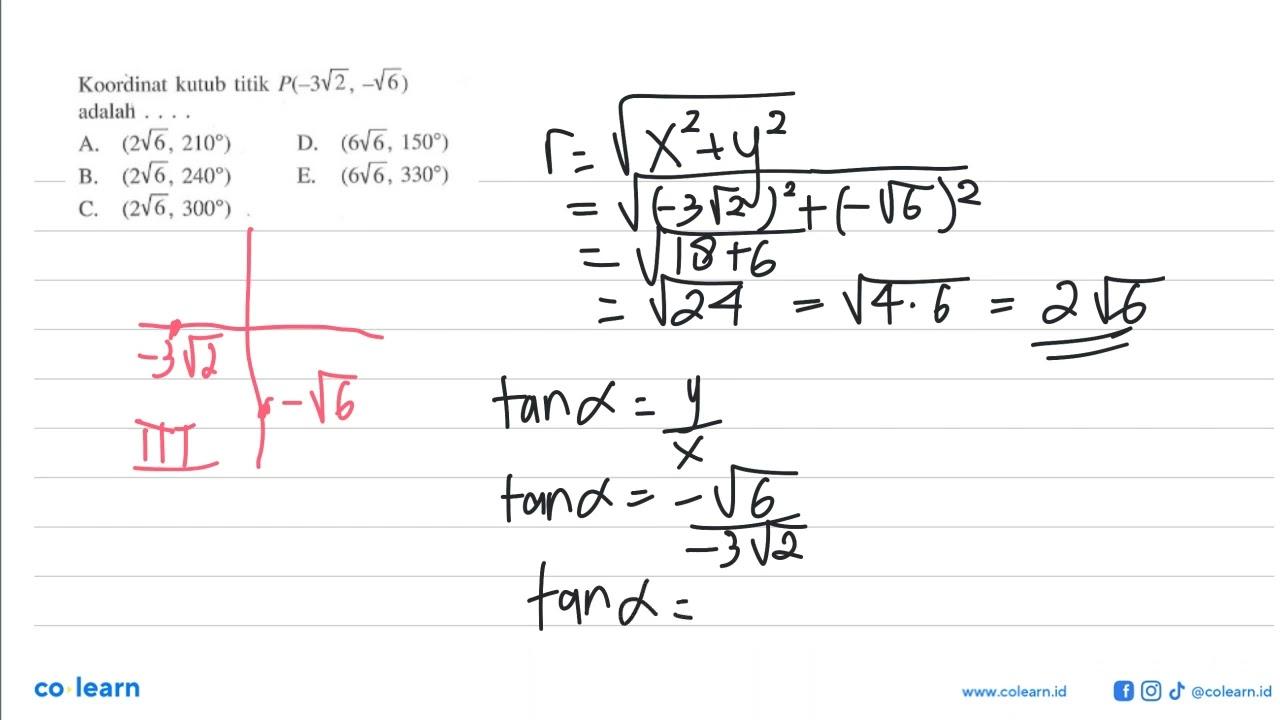 Koordinat kutub titik P(–3√2, –√6)
adalah . . . .
A. (2√6, 210°) D. (6√6, 150°)
B. (2√6, 240°) E. (6√6, 330°)
C. (2√6, 300°)
r = √(x² + y²)
= √((-3√2)² + (-√6)²)
= √(18+6)
= √24 = √(4·6) = 2√6
-3√2
-√6
III
tan α = y/x
tan α = -√6/-3√2
tan α =
co learn
www.colearn.id @colearn.id